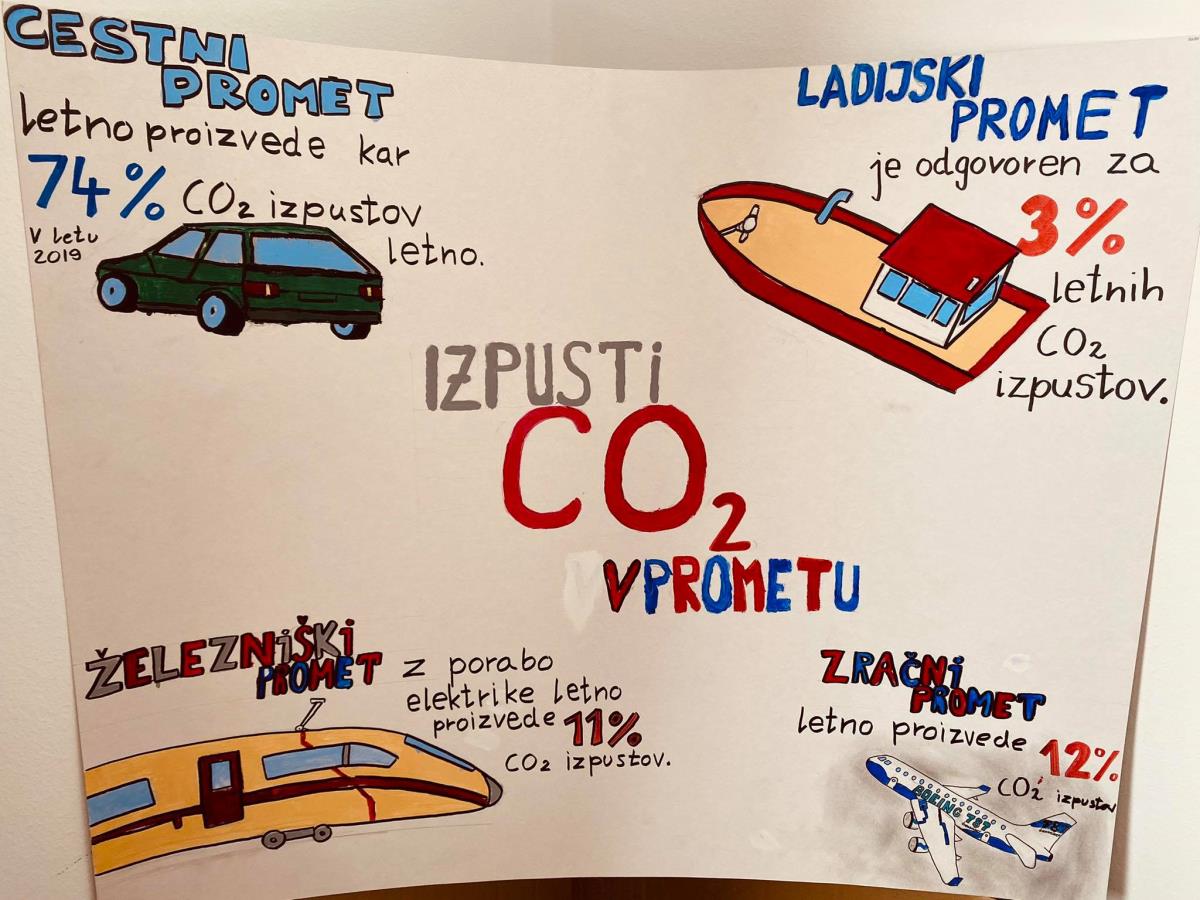 CESTNI
PROMET
letno proizvede kar
74% CO₂ izpustov
letno.
V letu
2019
LADIJSKI
PROMET
je odgovoren za
3%
letnih
CO₂
izpustov.
IZPUSTi
CO₂
V PROMETU
ŽELEZNiŠKi
PROMET
z porabo
elektrike letno
proizvede 11%
CO₂ izpustov.
ZRAČNi
PROMET
letno proizvede
12%
CO₂ izpustov
BOEING 787